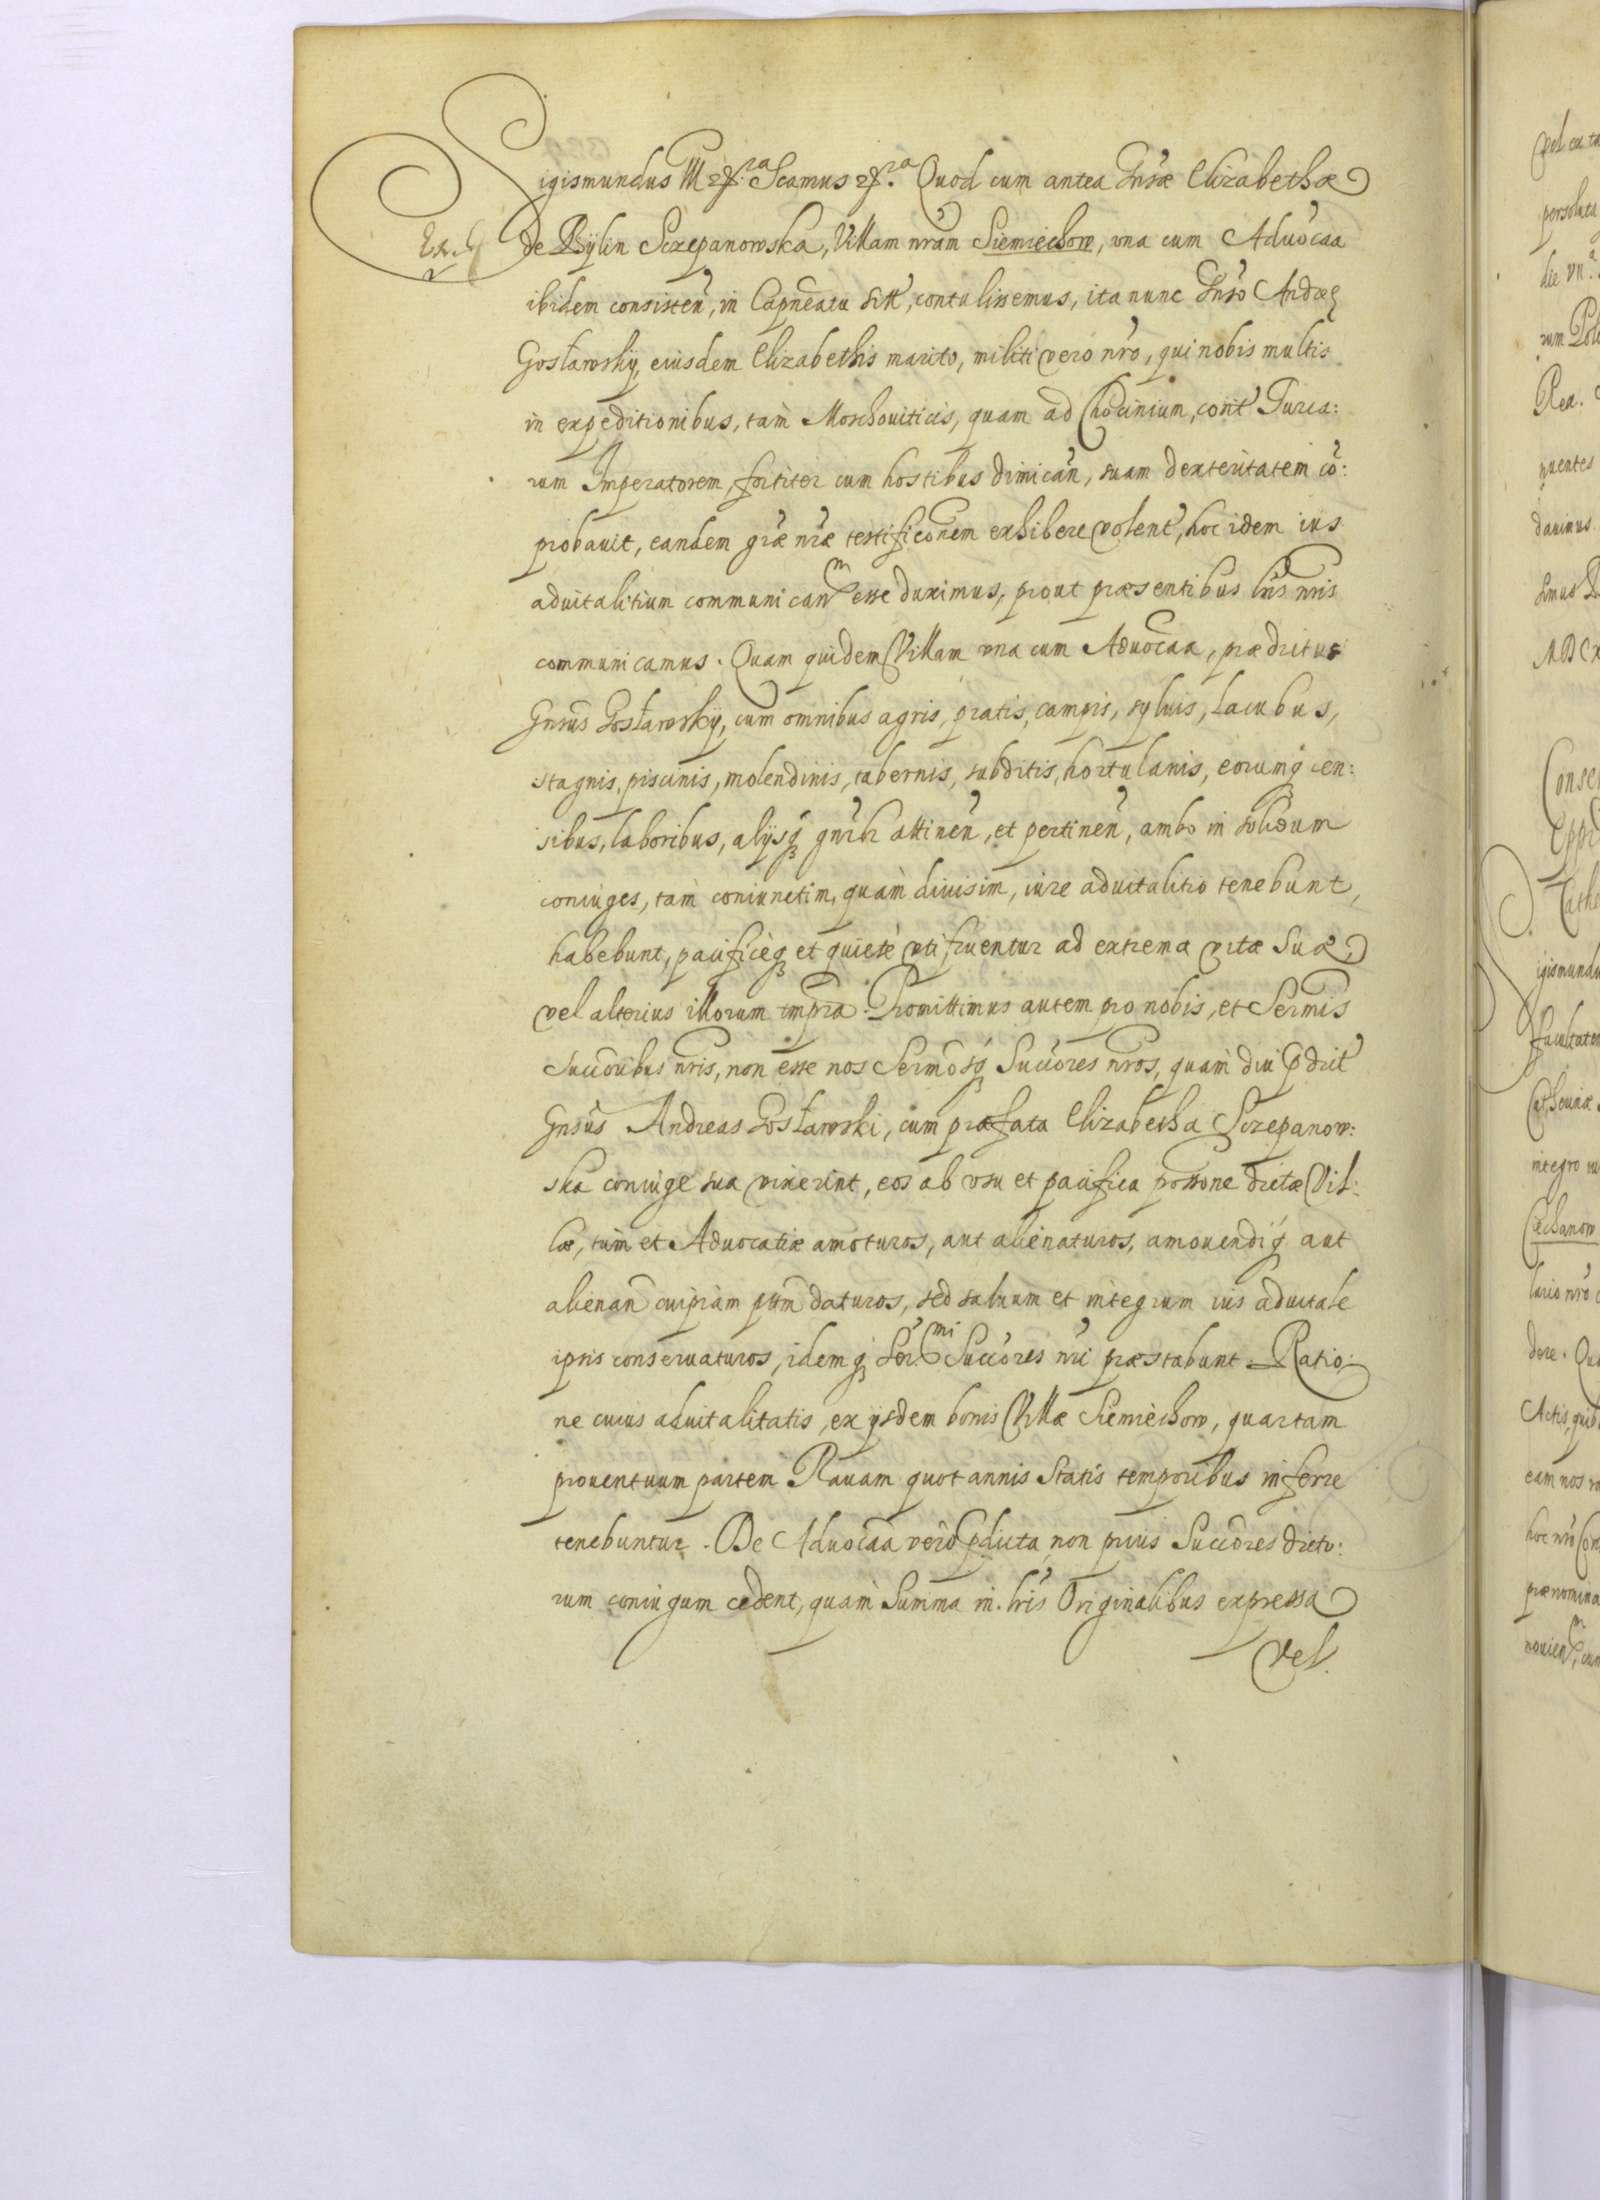 Sigismundus III etc. Scamus etc. Quod cum antea Gnsæ Elizabethæ
de Bylin Sczepanowska, Villam nram Siemiechow, una cum Aduocaa
ibidem consisten, in Capneatu sitt, contulissemus, ita nunc Gnso Andreæ
Gosławskÿ, eiusdem Elizabethis marito, militi vero nro, qui nobis multis
in expeditionibus, tam Moschouiticis, quam ad Chocinium, cont Turca:
rum Imperatorem, fortiter cum hostibus dimican, suam dexteritatem co:
probauit, eandem græ nræ testificonem exhibere volent, hoc idem ius
aduitalitium communican͏m esse duximus, prout præsentibus lris nris
communicamus. Quam quidem Villam una cum Aduocaa, prædictus
Gnsus Gosławskÿ, cum omnibus agris, pratis, campis, syluis, lacubus,
stagnis, piscinis, molendinis, tabernis, subditis, hortulanis, eorumq cen:
sibus, laboribus, alÿsq gnrlr attinen, et pertinen, ambo in solidum
coniuges, tam coniunctim, quam diuisim, iure aduitalitio tenebunt,
habebunt, pacificeq et quiete uti fruentur ad extrema vitæ suæ,
vel alterius illorum tmpra. Promittimus autem pro nobis, et Sermis
Succoribus nris, non esse nos Sermosq Succores nros, quam diu pdict
Gnsus Andreas Gosławski, cum præfata Elizabetha Sczepanow:
ska coniuge sua vixerint, eos ab usu et pacifica possone dictæ Vil:
læ, tum et Aduocatiæ amoturos, aut alienaturos, amouendiq aut
alienan cuipiam ptm daturos, sed saluum et integrum ius aduitale
ipsis conseruaturos, idemq Sermi Succores nri præstabunt. Ratio:
ne cuius aduitalitatis, ex ÿsdem bonis Villæ Siemiechow, quartam
prouentuum partem Rauam quotannis statis temporibus inferre
tenebuntur. De Aduocaa vero pdicta, non prius Succores dicto:
rum coniugum cedent, quam Summa in lris Originalibus expressa
vel.